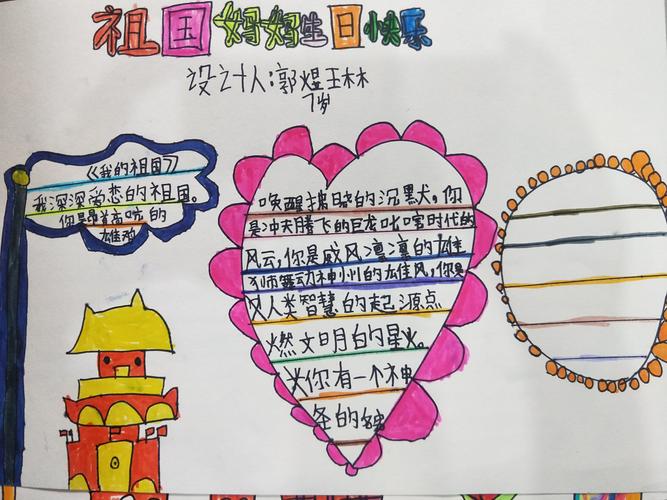 祖国妈妈生日快乐
设计人:郭煜玉林
7岁
《我的祖国》
我深深爱恋的祖国。
你是昂首高吭的
雄鸡
唤醒拂晓的沉默,你
是冲天腾飞的巨龙叱咤时代的
风云,你是威风凛凛的雄
狮舞动神州的雄风,你是
人类智慧的起源点
燃文明的星火。
你有一个神
圣的